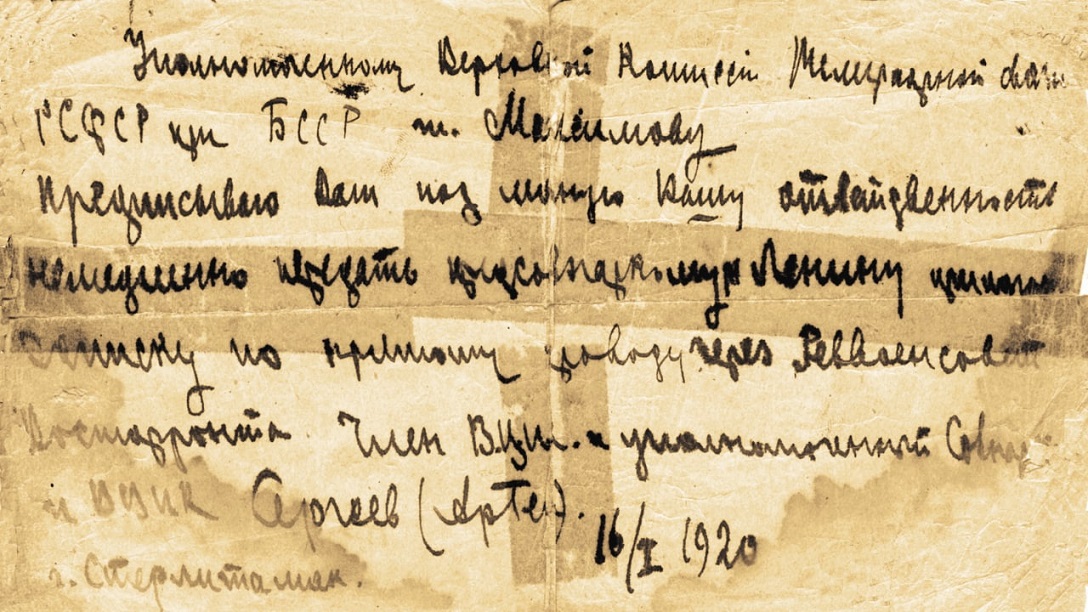 Уполномоченному Верховной Комиссіи Телеграфной связи
РСФСР при БССР т. Максимову
Предписываю Вам под личную Вашу ответственность
немедленно передать предсовнаркому Ленину
записку по прямому проводу через Реввоенсовет
Востфронта. Член ВЦИК и уполномоченный Совнар
и ВЦИК Сергеев (Артем). 16/I 1920
г. Стерлитамак.